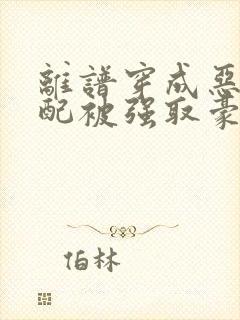 離譜穿成惡
配被强取豪
伯林